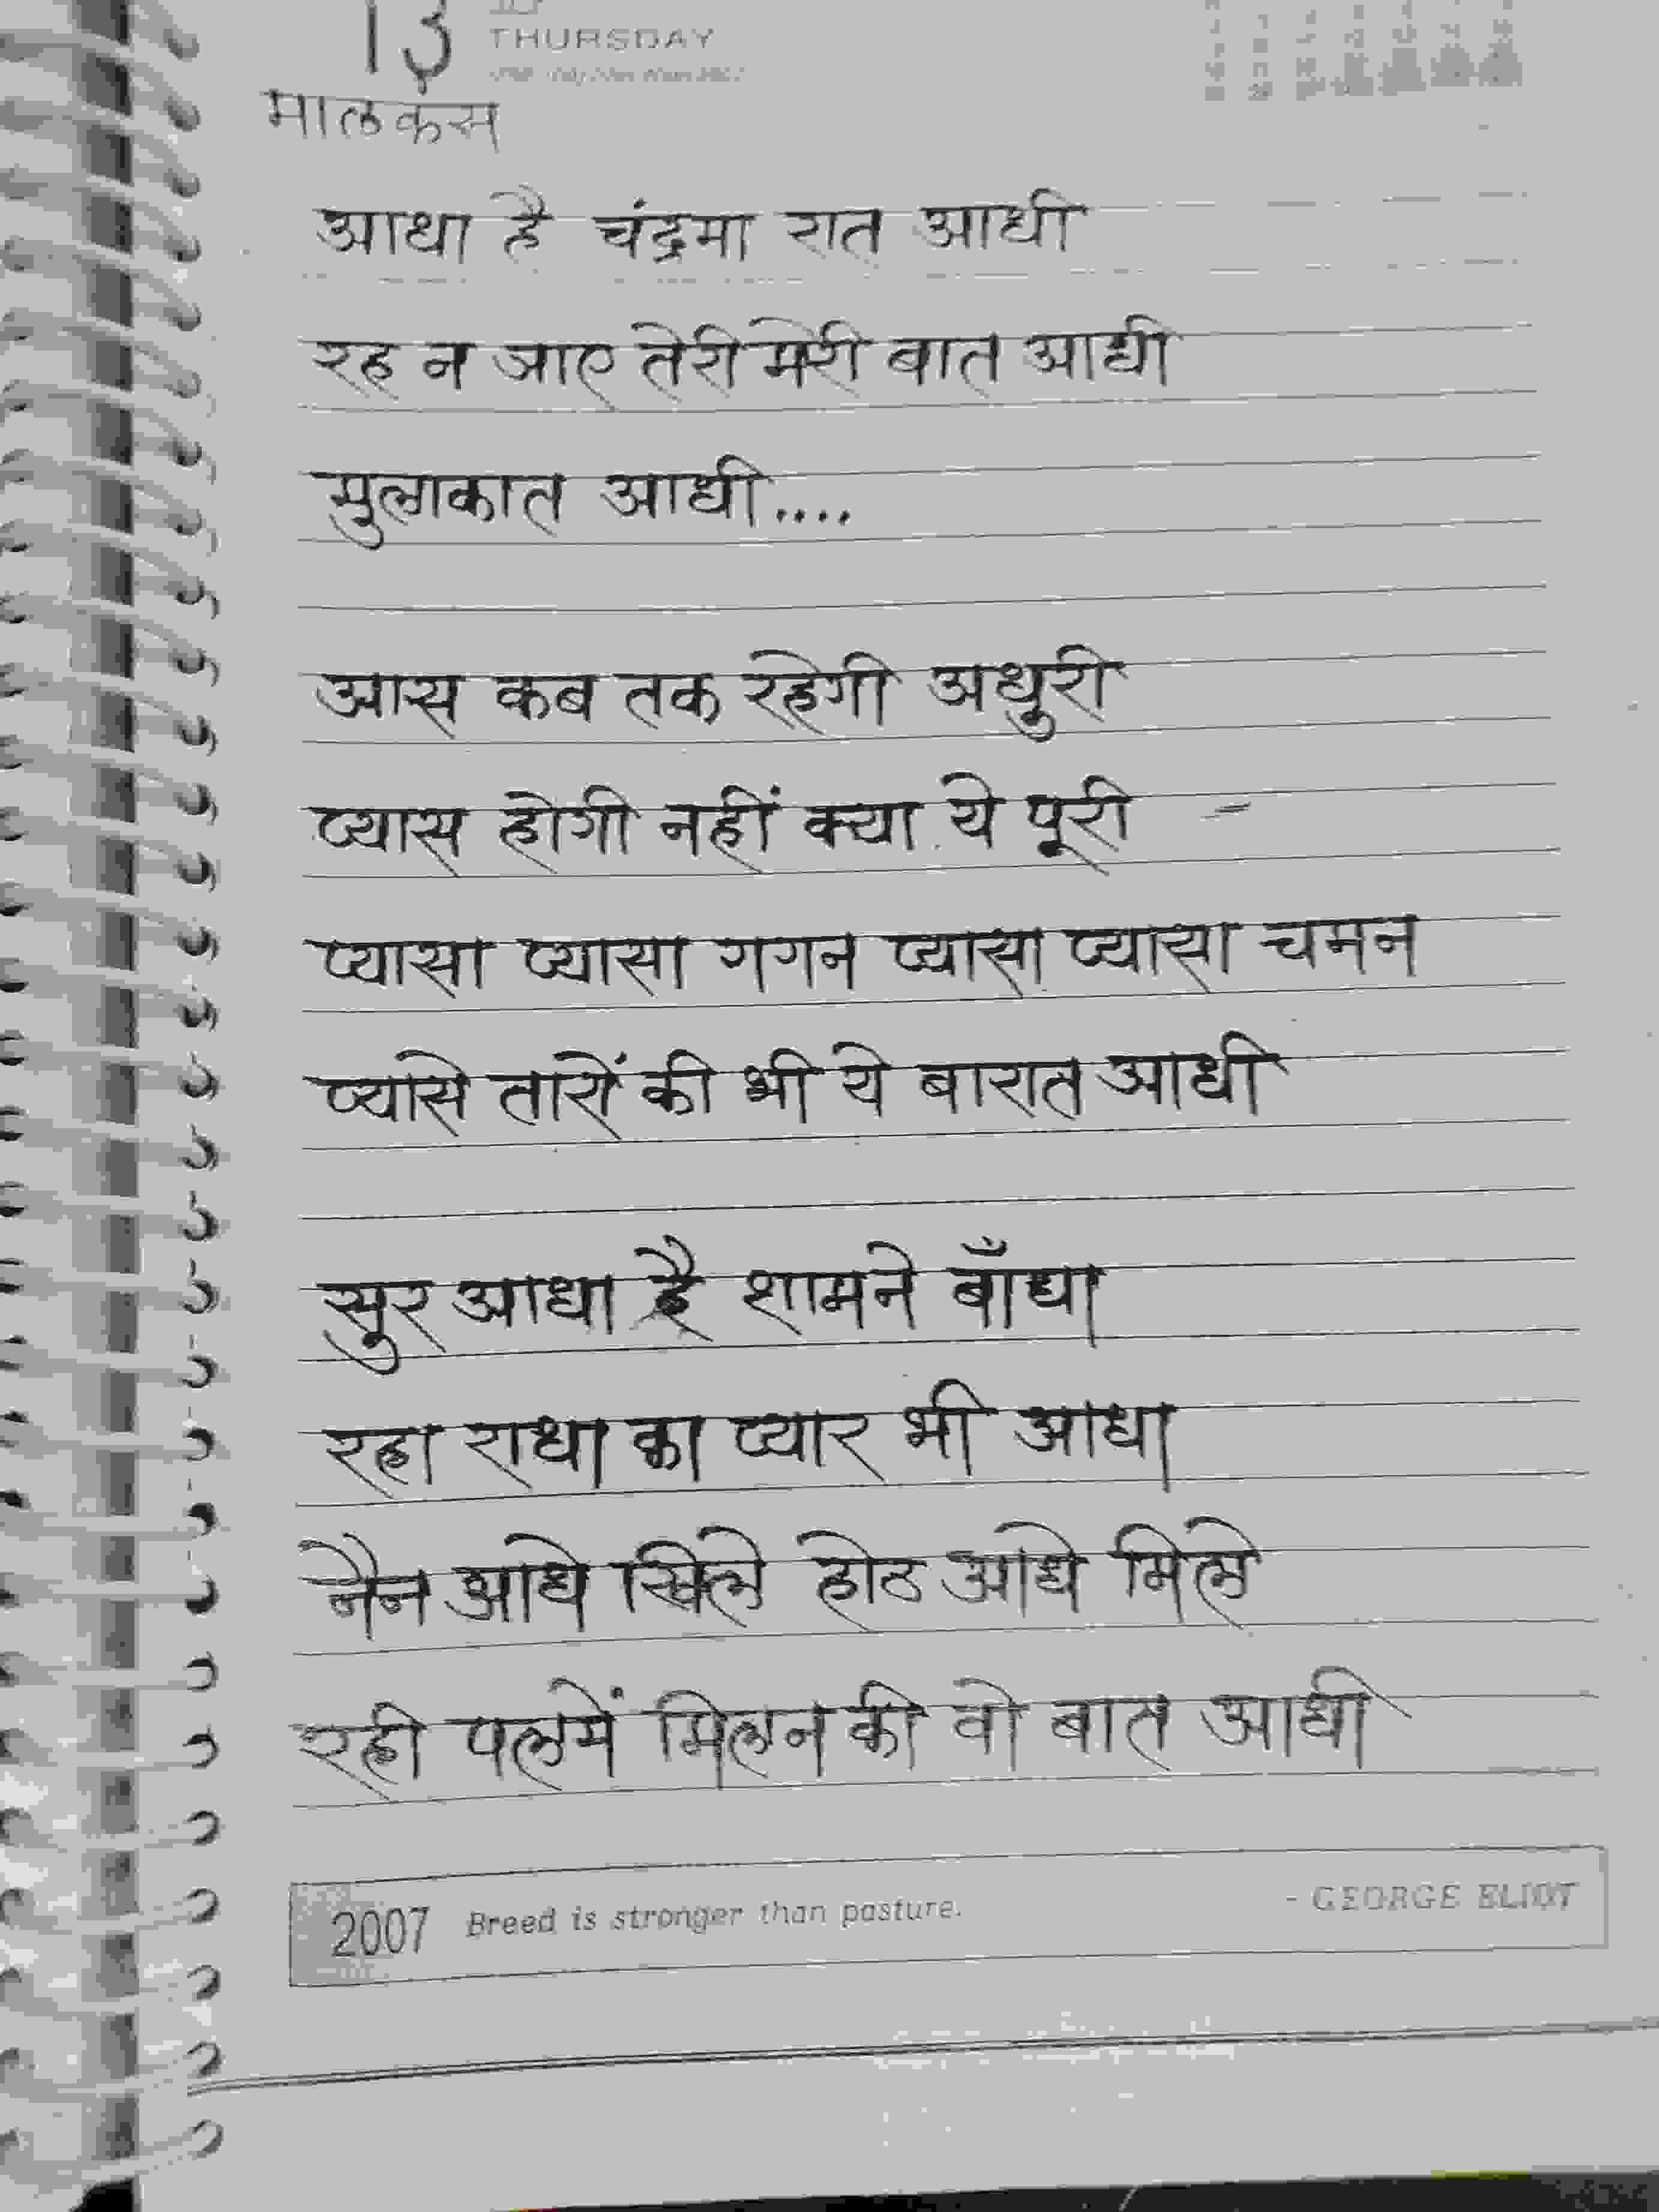 13 THURSDAY
मालकंस
आधा है चंद्रमा रात आधी
रह न जाए तेरी मेरी बात आधी
मुलाकात आधी....
आस कब तक रहेगी अधुरी
प्यास होगी नहीं क्या ये पूरी
प्यासा प्यासा गगन प्यासा प्यासा चमन
प्यासे तारों की भी ये बारात आधी
सुर आधा है शामने बाँधा
रहा राधा का प्यार भी आधा
नैन आधे खिले होठ आधे मिले
रही पलमें मिलन की वो बात आधी
2007 Breed is stronger than pasture. - GEORGE ELIOT